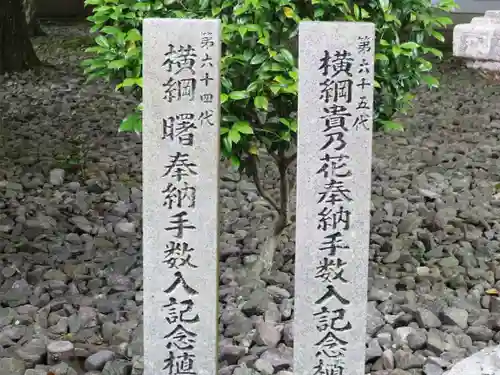 第六十四代
横綱 曙 奉納手数入記念植
第六十五代
横綱貴乃花奉納手数入記念植